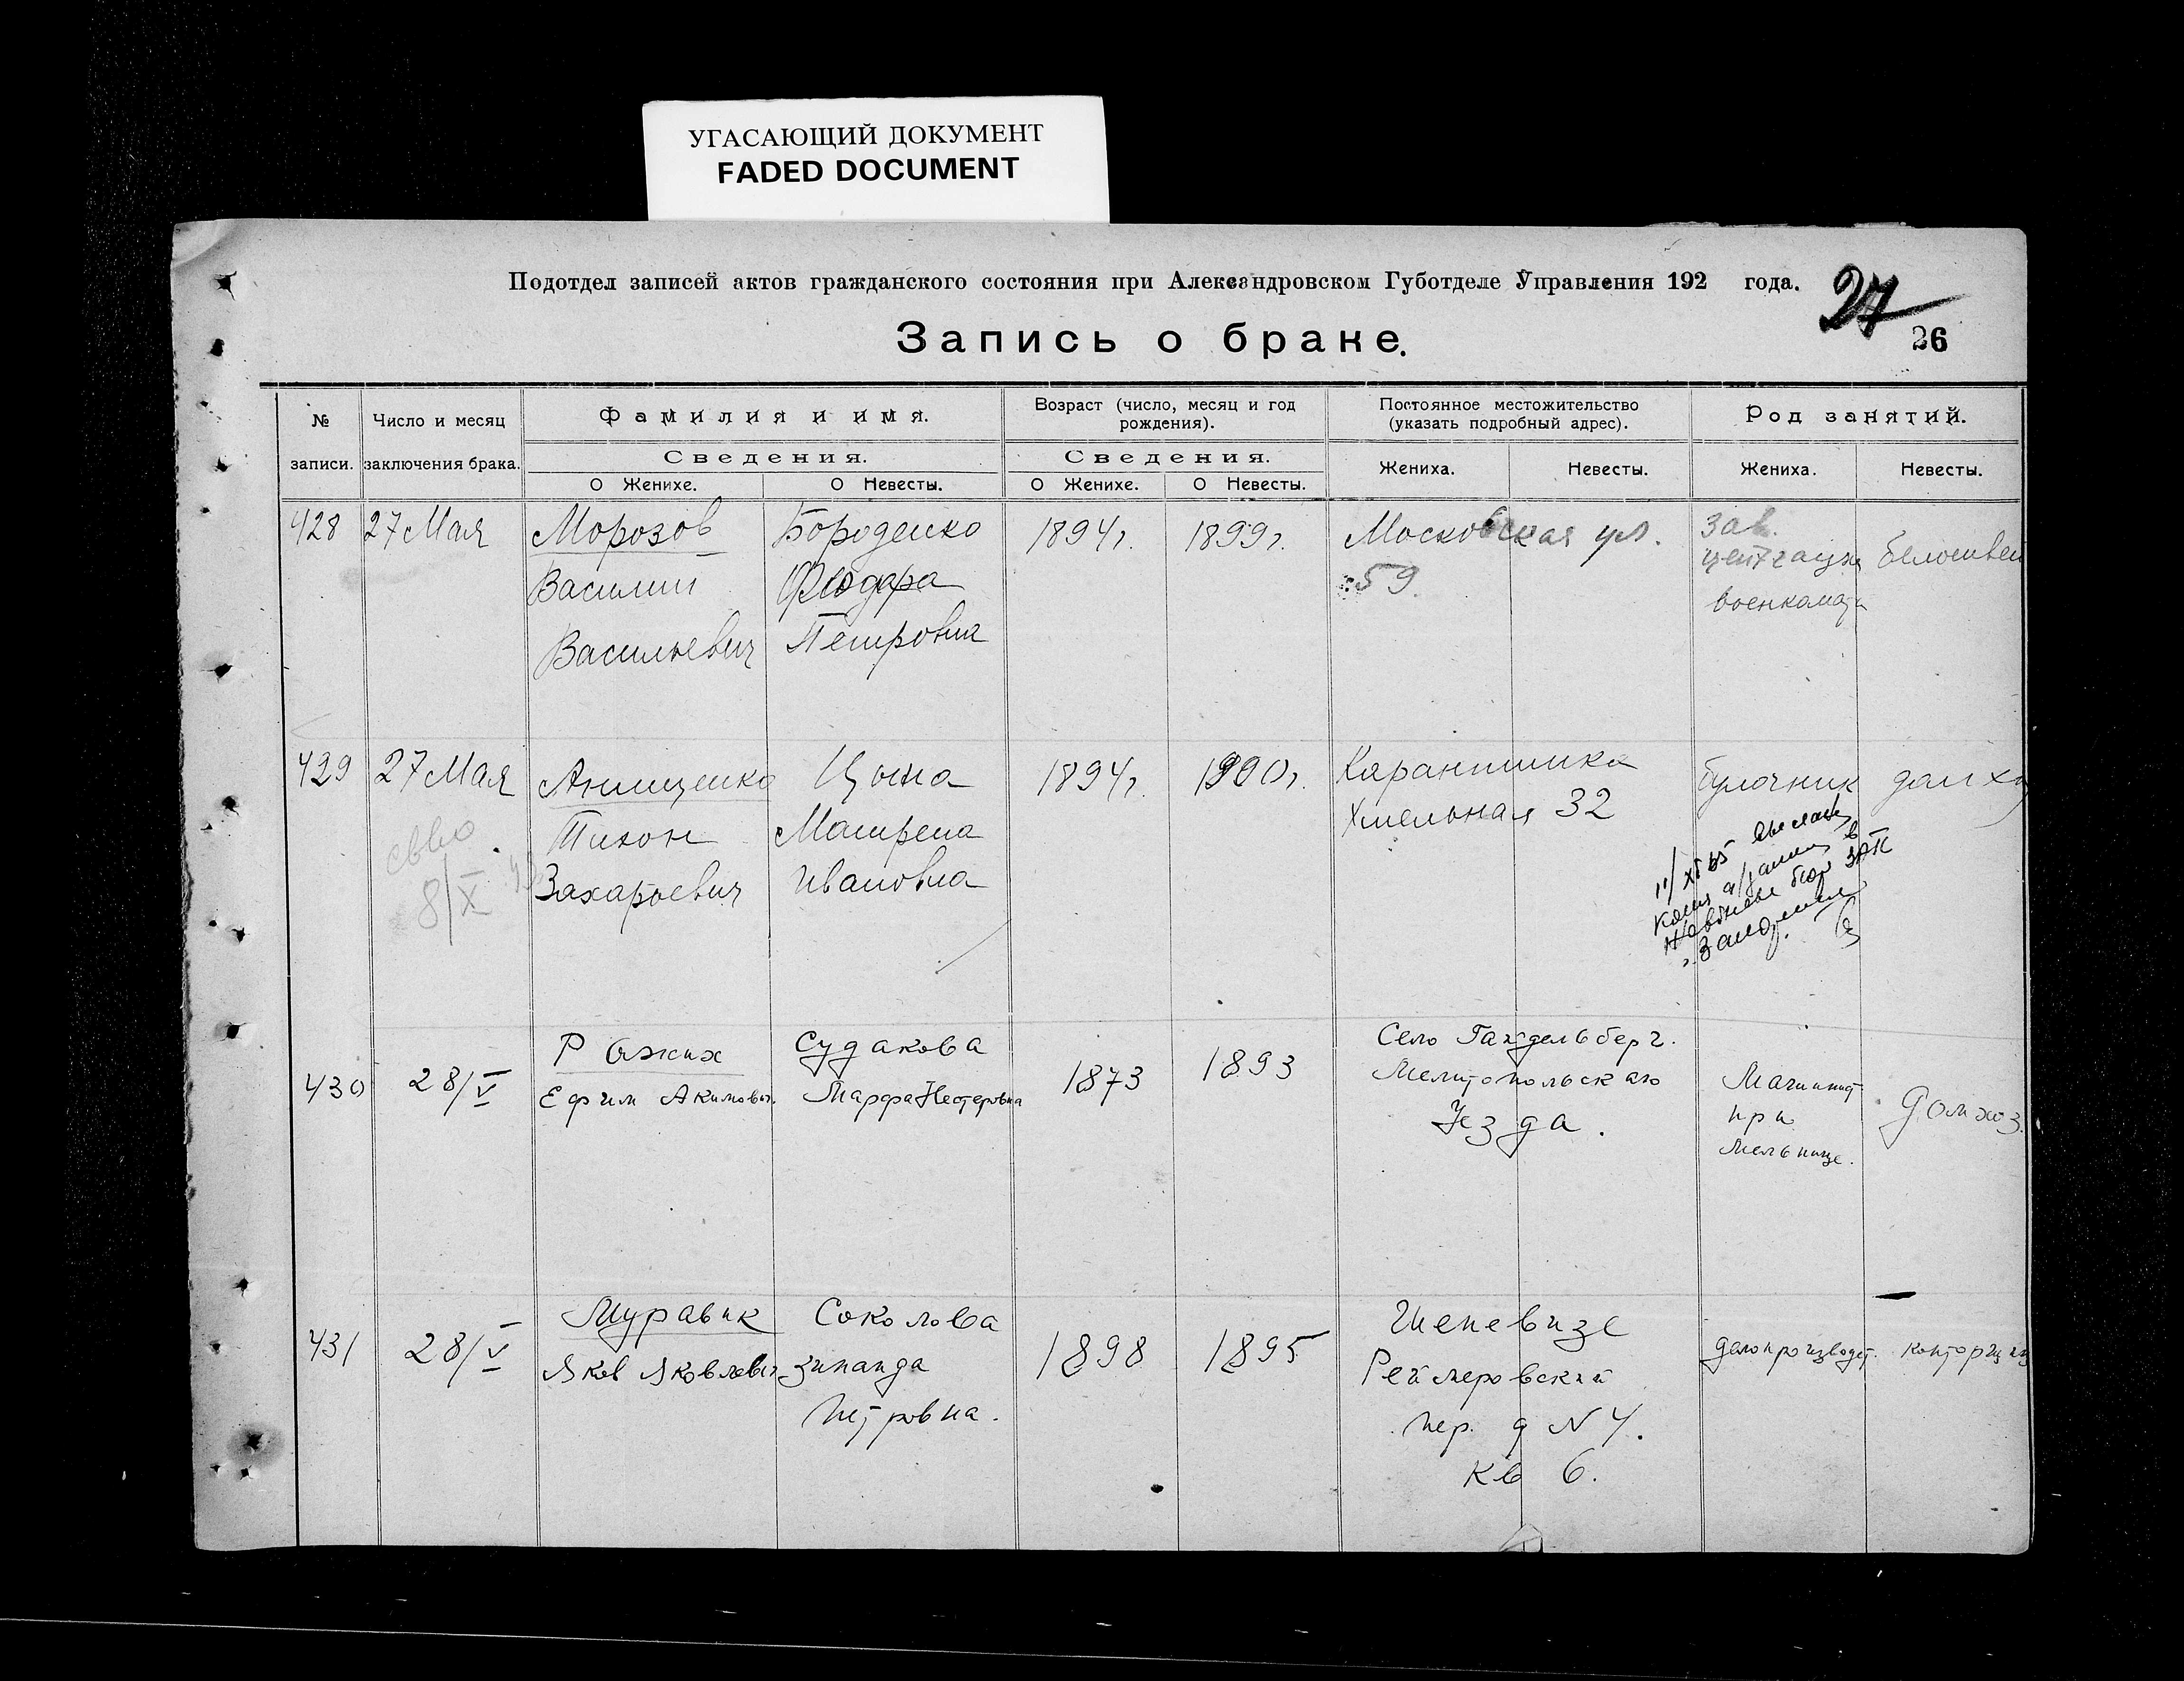 УГАСАЮЩИЙ ДОКУМЕНТ
FADED DOCUMENT
Подотдел записей актов гражданского состояния при Александровском Губотделе Управления 192 года.
27
Запись о браке.
26
№ записи.
Число и месяц заключения брака.
Фамилия и имя.
Сведения.
О Женихе.
О Невесты.
Возраст (число, месяц и год рождения).
Сведения.
О Женихе.
О Невесты.
Постоянное местожительство (указать подробный адрес).
Жениха.
Невесты.
Род занятий.
Жениха.
Невесты.
428
27 Мая
Морозов
Василий
Васильевич
Бороденко
Федора
Петровна
1894 г.
1899 г.
Московская ул.
59
Зав.
военкомата
белошвей
429
27 Мая
Анищенко
Тихон
Захарьевич
Цына
Матрена
Ивановна
1894 г.
1900 г.
Карантинка
Хмельная 32
булочник
дом хоз
свво
8/X
11/XI 65
в
бюро ЗАГС
430
28/V
Ражих
Ефим Акимович.
Судакова
Марфа Нестеровна
1873
1893
Село Гайдельберг.
Мелитопольскаго
Уезда.
Машинист
при
мельнице.
Домхоз.
431
28/V
Муравик
Яков Яковлевич
Соколова
Зинаида
Петровна.
1898
1895
Шеневизе
Реймеровский
пер. д N 4.
кв 6.
делопроизводит.
конторщица